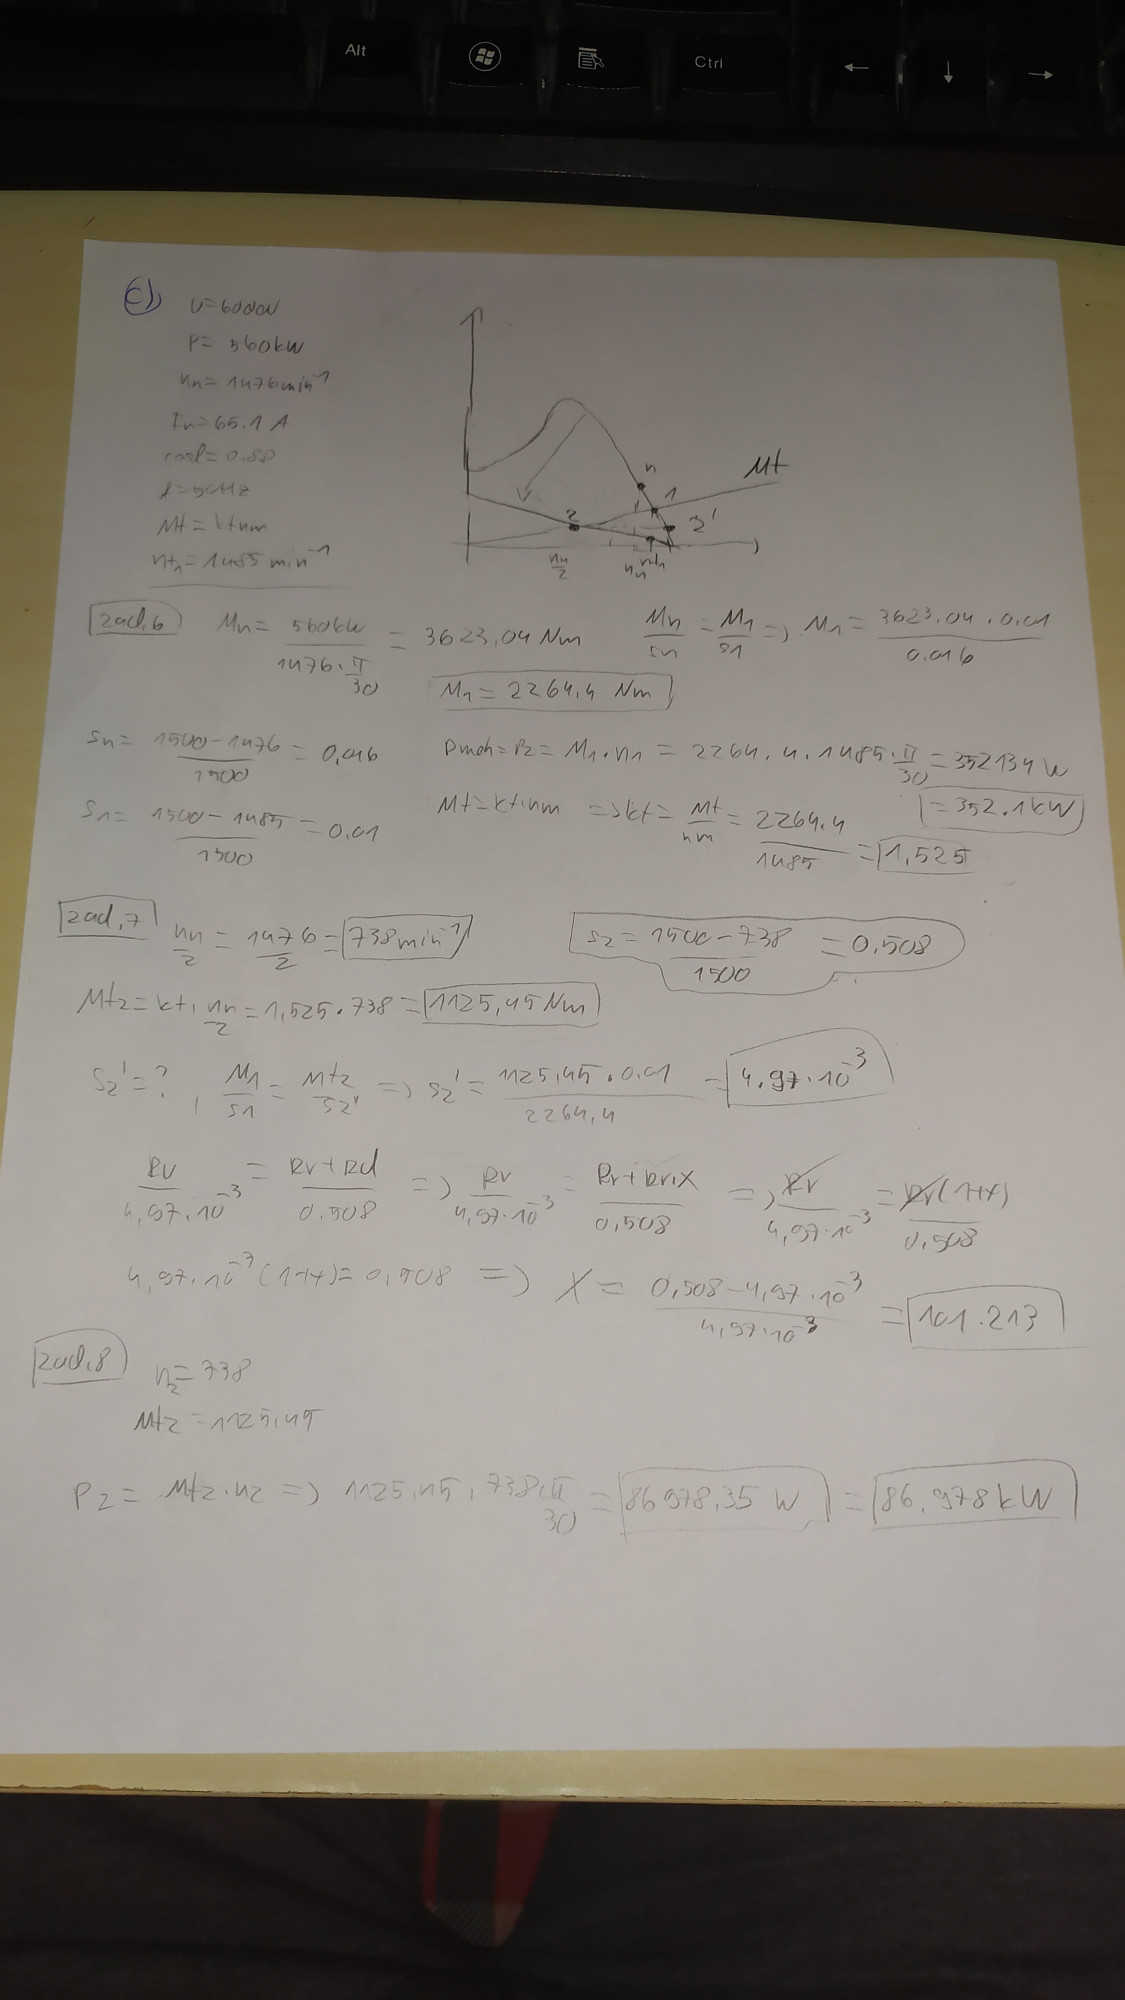 Alt
Ctrl
C)
U=6000V
P= 560kW
nn=1476min⁻¹
In=65.1 A
cosf=0.88
f=50Hz
Mt=kt·nm
nt1=1485min⁻¹
n
1
Mt
2
2'
nn/2
nn
nt1
zad.6
Mn= 560kW / 1476·π/30 = 3623,04 Nm
Mn/sn = M1/s1 => M1= 3623,04·0,01 / 0.016
M1=2264,4 Nm
sn= 1500-1476 / 1500 = 0,016
Pmeh=P2= M1·n1 = 2264.4·1485·π/30 =352134 W
=352.1kW
s1= 1500-1485 / 1500 =0,01
Mt=kt·nm =>kt= Mt/nm = 2264,4 / 1485 = 1,525
zad.7
nn/2 = 1476/2 = 738min⁻¹
s2= 1500-738 / 1500 =0,508
Mt2=kt· nn/2 =1,525·738= 1125,45Nm
s2'=? , M1/s1 = Mt2/s2' => s2'= 1125,45·0,01 / 2264,4 = 4,97·10⁻³
Rr / 4,97·10⁻³ = Rr+Rd / 0,508 => Rr / 4,97·10⁻³ = Rr+Rr·X / 0,508 => Rr / 4,97·10⁻³ = Rr(1+x) / 0,508
4,97·10⁻³(1+x)=0,508 => X= 0,508-4,97·10⁻³ / 4,97·10⁻³ = 101.213
zad.8
n2=738
Mt2=1125,45
P2= Mt2·n2 => 1125,45·738·π/30 = 86978,35 W = 86,978kW